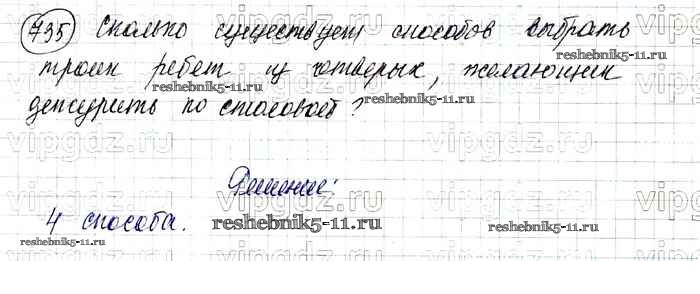 735 Сколько существует способов выбрать
троих ребят из четверых, желающих
дежурить по столовой?
Решение:
4 способа.
vipgdz.ru
reshebnik5-11.ru
reshebnik5-11.ru
reshebnik5-11.ru
reshebnik5-11.ru
reshebnik5-11.ru